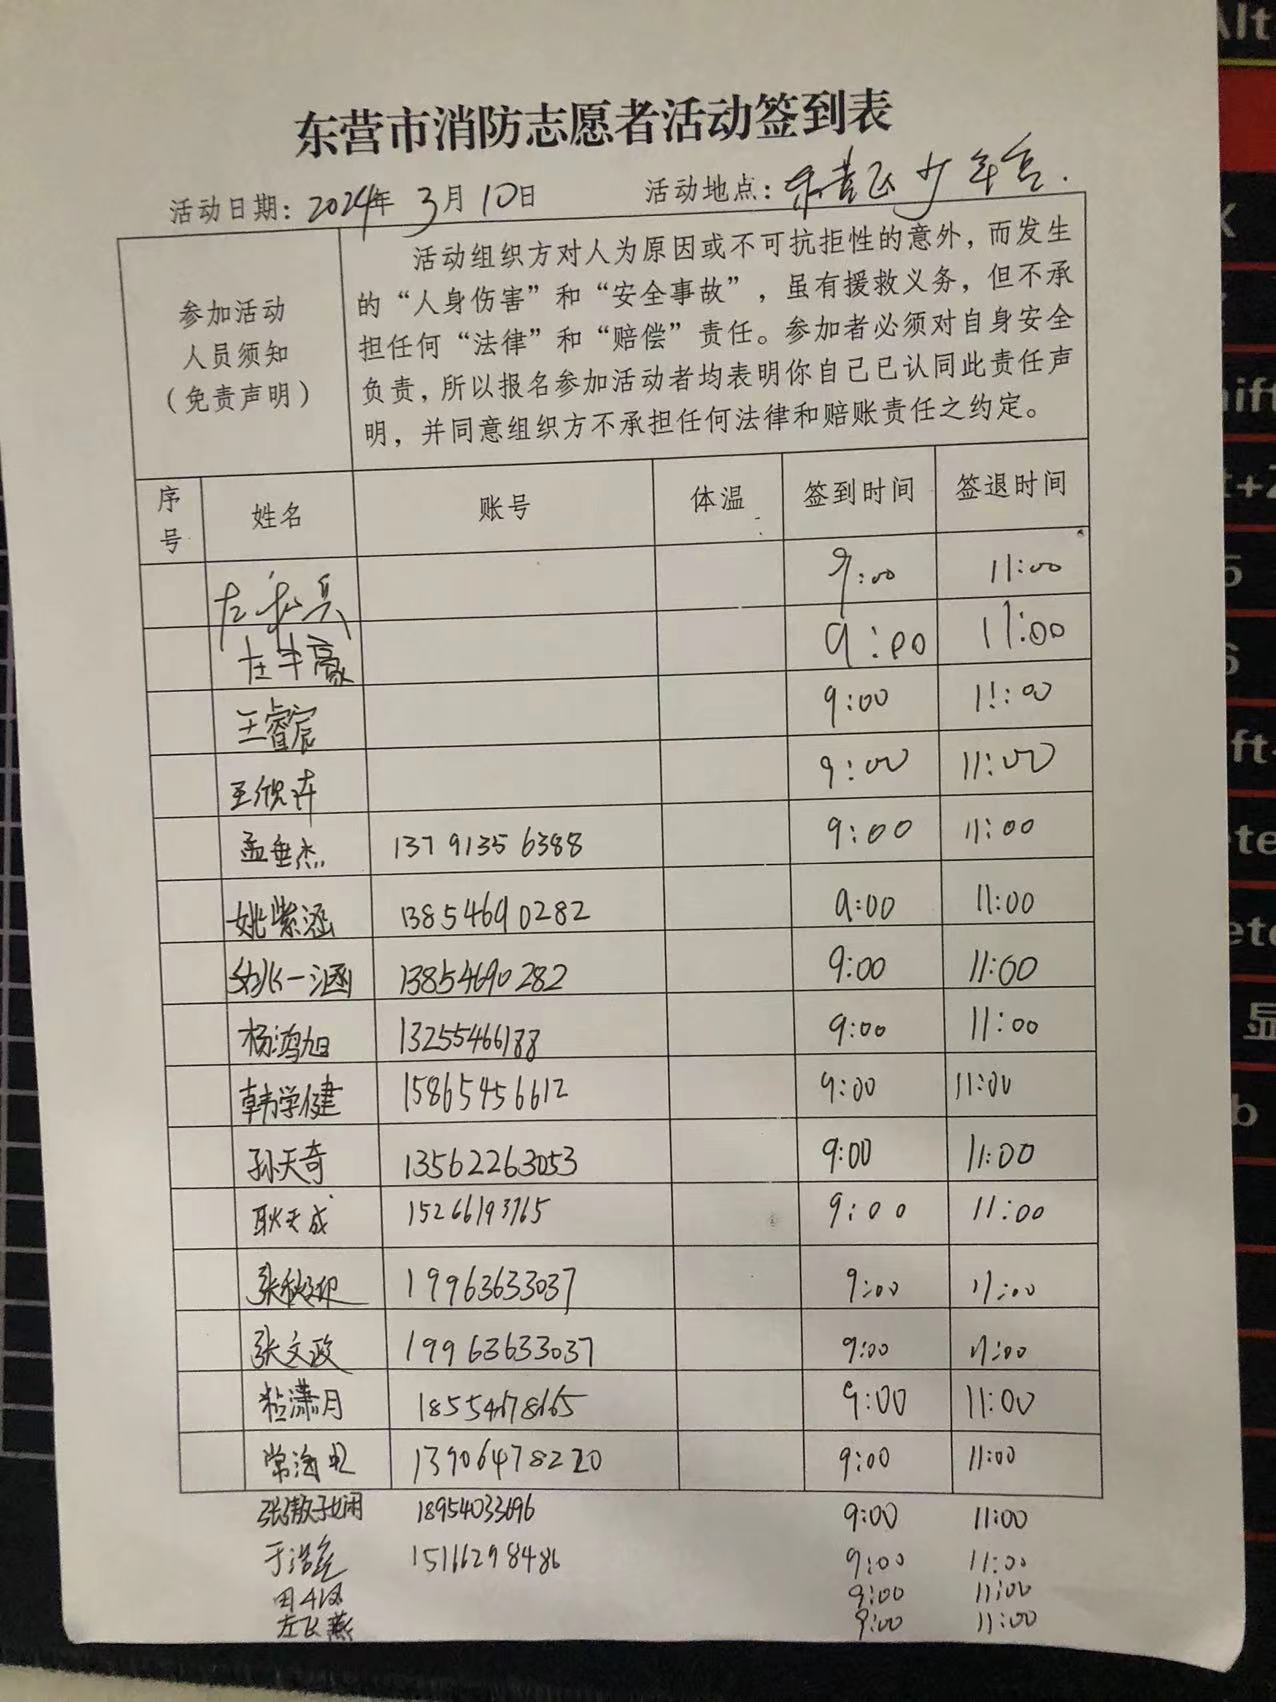 东营市消防志愿者活动签到表
活动日期：2024年 3月 10日 活动地点：东营区少年宫.
参加活动
人员须知
（免责声明）
活动组织方对人为原因或不可抗拒性的意外，而发生
的“人身伤害”和“安全事故”，虽有援救义务，但不承
担任何“法律”和“赔偿”责任。参加者必须对自身安全
负责，所以报名参加活动者均表明你自己已认同此责任声
明，并同意组织方不承担任何法律和赔账责任之约定。
序号 姓名 账号 体温 签到时间 签退时间
9:00 11:00
9:00 11:00
王睿宸 9:00 11:00
王欣卉 9:00 11:00
孟垂杰 13791356388 9:00 11:00
姚紫涵 13854690282 9:00 11:00
姚一涵 13854690282 9:00 11:00
杨鸿旭 13255466188 9:00 11:00
韩学健 15865456612 9:00 11:00
孙天奇 13562263053 9:00 11:00
耿天成 15266193765 9:00 11:00
19963633037 9:00 11:00
张文政 19963633037 9:00 11:00
潇月 18554678665 9:00 11:00
常海 13906478220 9:00 11:00
18954033696 9:00 11:00
于浩 15166298486 9:00 11:00
9:00 11:00
左飞燕 9:00 11:00